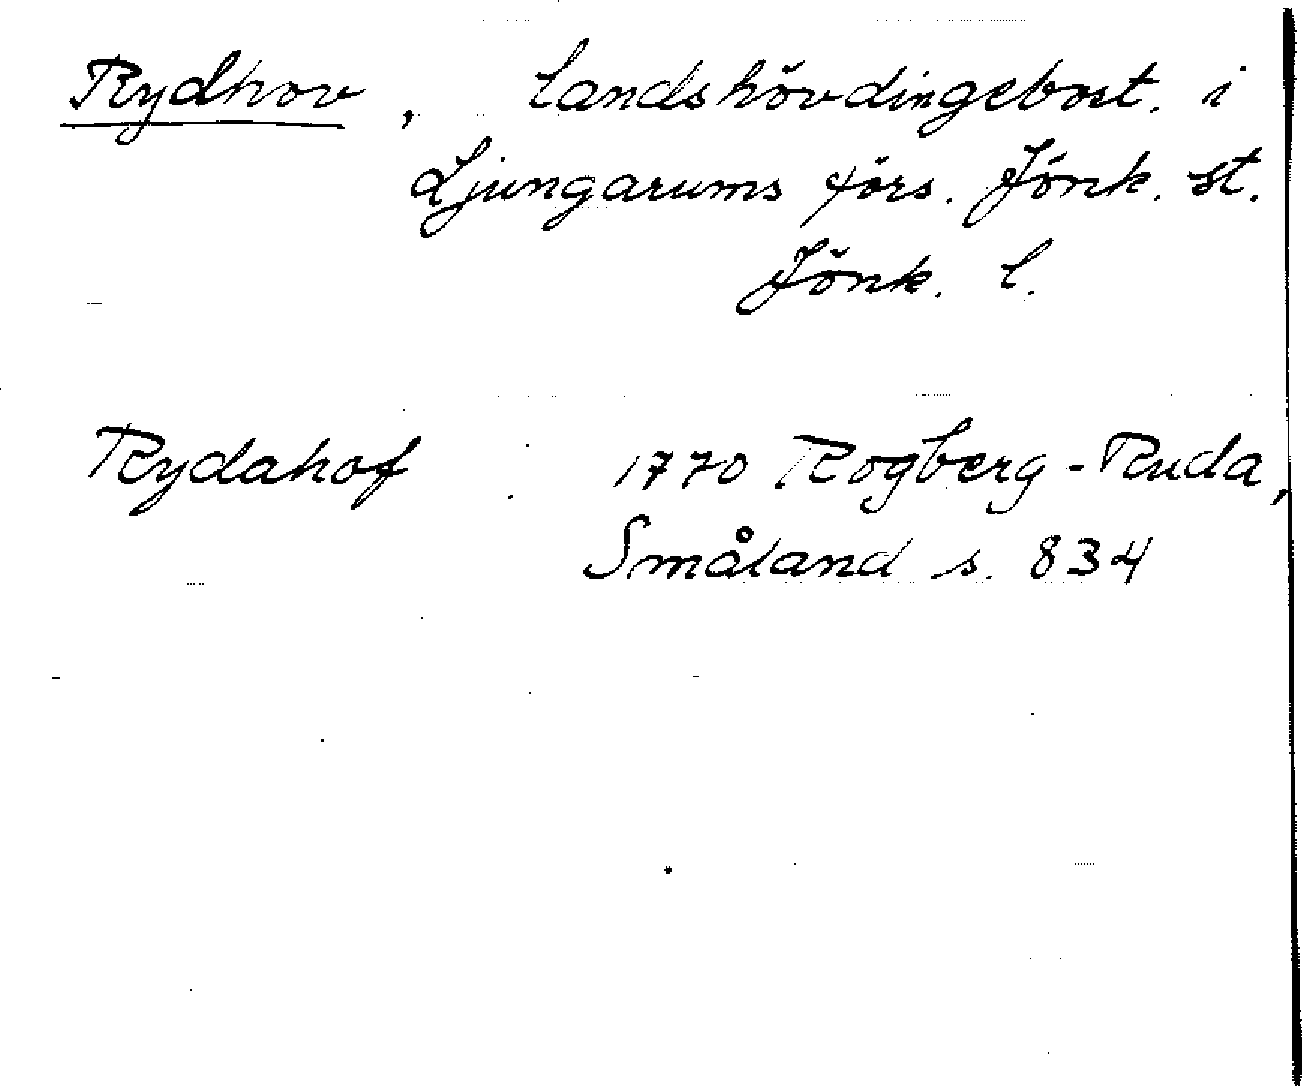 Rydhov, landshövdingebost. i
Ljungarums förs. Jönk. st.
Jönk. l.
Rydahof 1770 Rogberg-Ruda,
Småland s. 834